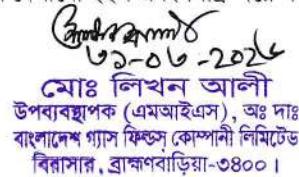 ৩১-০৮-২০২৫
মোঃ লিখন আলী
উপব্যবস্থাপক (এমআইএস), অঃ দাঃ
বাংলাদেশ গ্যাস ফিল্ডস্ কোম্পানী লিমিটেড
বিরাসার, ব্রাহ্মণবাড়িয়া-৩৪০০।